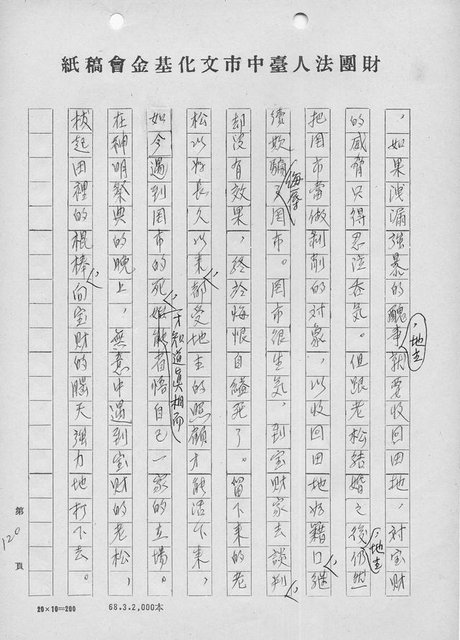 財團法人臺中市文化基金會稿紙
，如果洩漏強暴的醜事，地主就要收回田地，對宝財
的威脅只得忍泣吞気。但跟老松結婚之後，地主仍然
把罔市當做剝削的对象，以收回田地為藉口継
續欺騙侮辱了罔市。罔市很生気，到宝財家去談判，
却没有效果，終於悔恨自縊死了。留下来的老
松以為長久以来，都受地主的照顧才能活下来，
如今遇到罔市的死，才知道眞相而能覺悟自己一家的立場。
在神明祭典的晚上，無意中遇到宝財的老松，
拔起田裡的棍棒，向宝財的腦天強力地打下去。
第
120
頁
20×10=200
68.3.2,000本